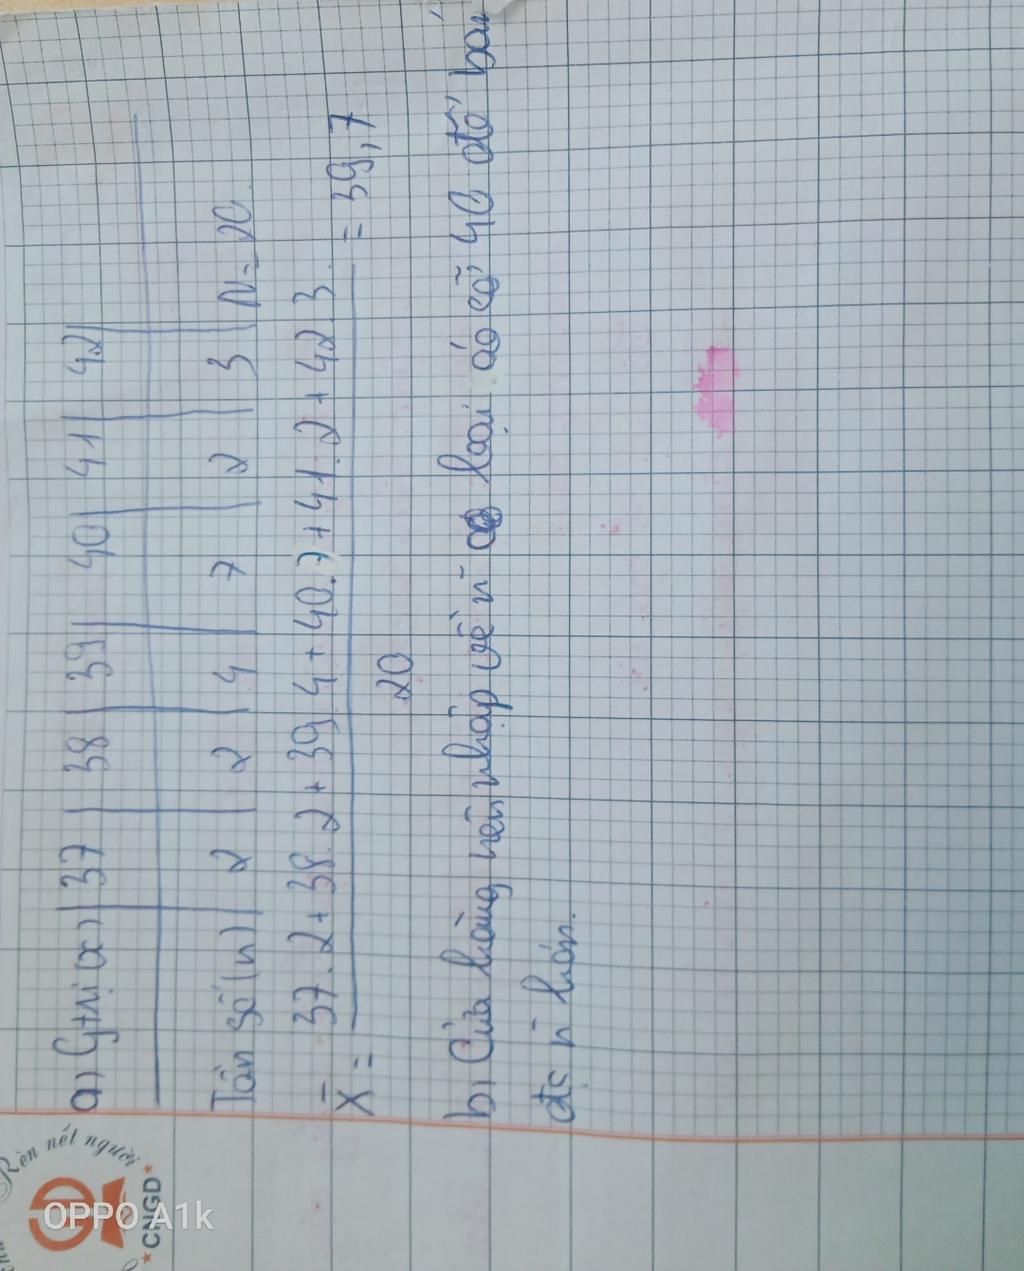 a) Gtrị (x) | 37 | 38 | 39 | 40 | 41 | 42 |
Tần số (n) | 2 | 2 | 4 | 7 | 2 | 3 | N = 20
X̄ = 37.2 + 38.2 + 39.4 + 40.7 + 41.2 + 42.3 = 39,7
20
b) Cửa hàng nên nhập về n̄ loại áo cỡ 40 để bán
đc n̄ hơn.
Rèn nết người
CNGD
OPPO A1k